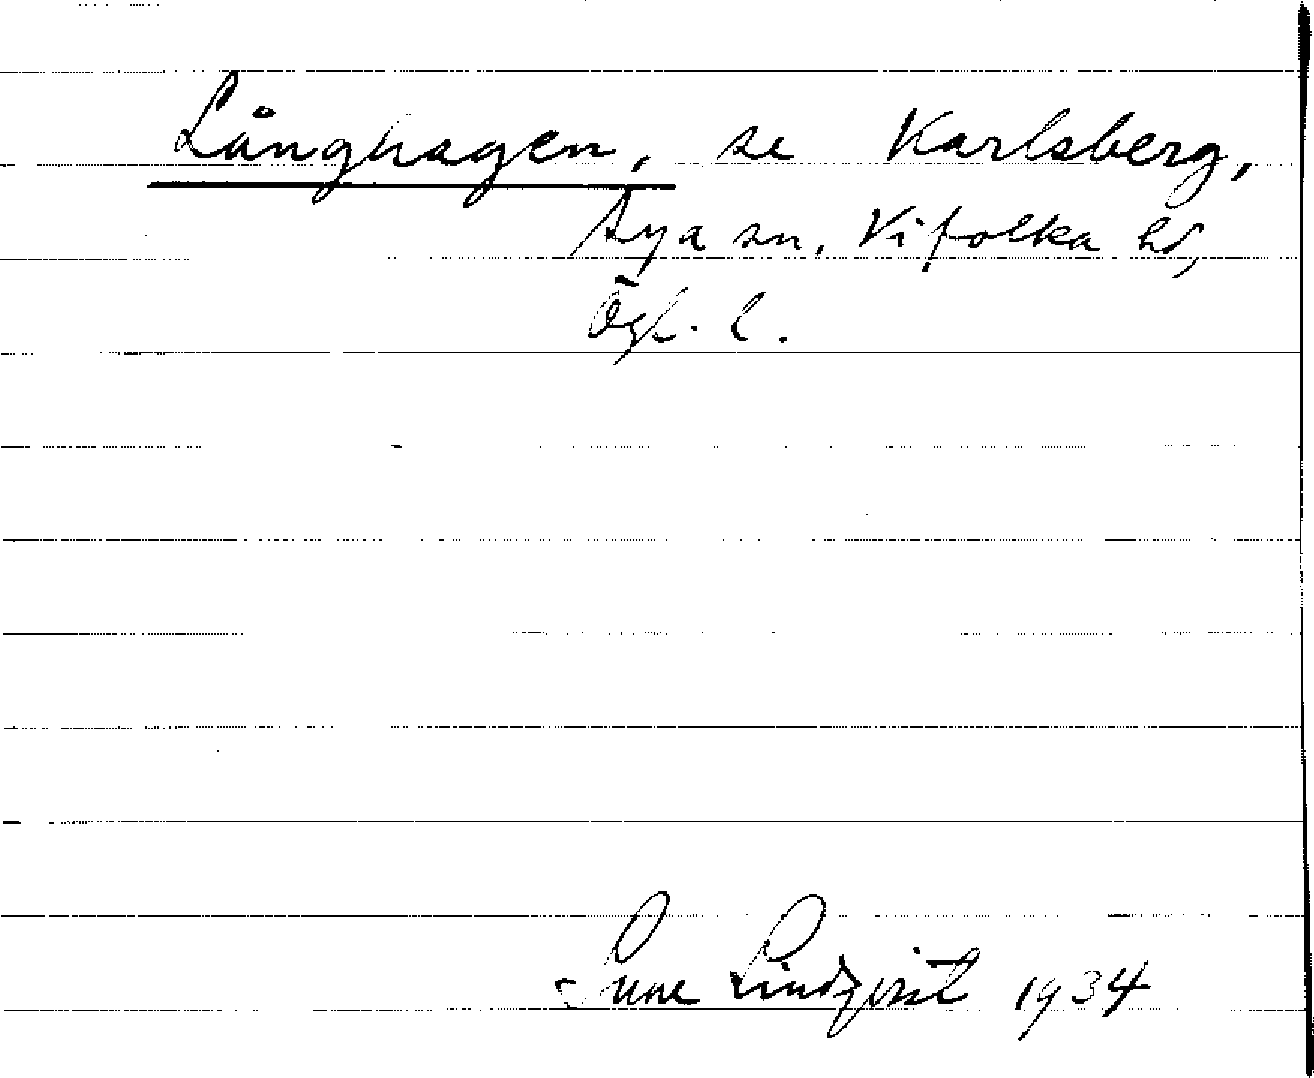 Långhagen, se Karlsberg,
Sya sn, Vifolka hd,
Ögl. l.
Sune Lindqvist 1934